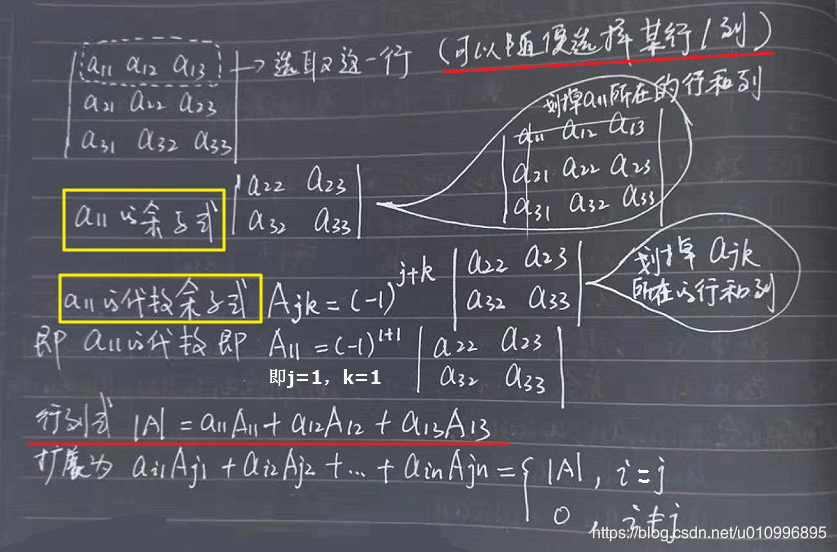 a11 a12 a13 → 选取这一行 (可以随便选择某行/列)
a21 a22 a23
a31 a32 a33
划掉a11所在的行和列
a11 a12 a13
a21 a22 a23
a31 a32 a33
a11的余子式 | a22 a23 |
| a32 a33 |
a11的代数余子式 Ajk = (-1)^{j+k} | a22 a23 |
| a32 a33 |
划掉 ajk
所在的行和列
即 a11的代数即 A11 = (-1)^{1+1} | a22 a23 |
| a32 a33 |
即j=1，k=1
行列式 |A| = a11A11 + a12A12 + a13A13
扩展为 ai1Aj1 + ai2Aj2 + … + ainAjn = { |A| , i=j
0 , i≠j
https://blog.csdn.net/u010996895